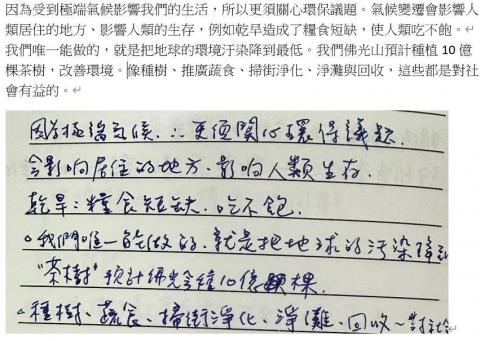 因為受到極端氣候影響我們的生活，所以更須關心環保議題。氣候變遷會影響人
類居住的地方、影響人類的生存，例如乾旱造成了糧食短缺，使人類吃不飽。↵
我們唯一能做的，就是把地球的環境汙染降到最低。我們佛光山預計種植 10 億
棵茶樹，改善環境。像種樹、推廣蔬食、掃街淨化、淨灘與回收，這些都是對社
會有益的。↵
因為極端氣候∴更須關心環保議題.
會影响居住的地方.影响人類生存.
乾旱：糧食短缺.吃不飽.
。我們唯一能做的.就是把地球的污染降到
"茶樹"預計佛光會種10億棵.
。種樹、蔬食、掃街淨化、淨灘、回收～對社會